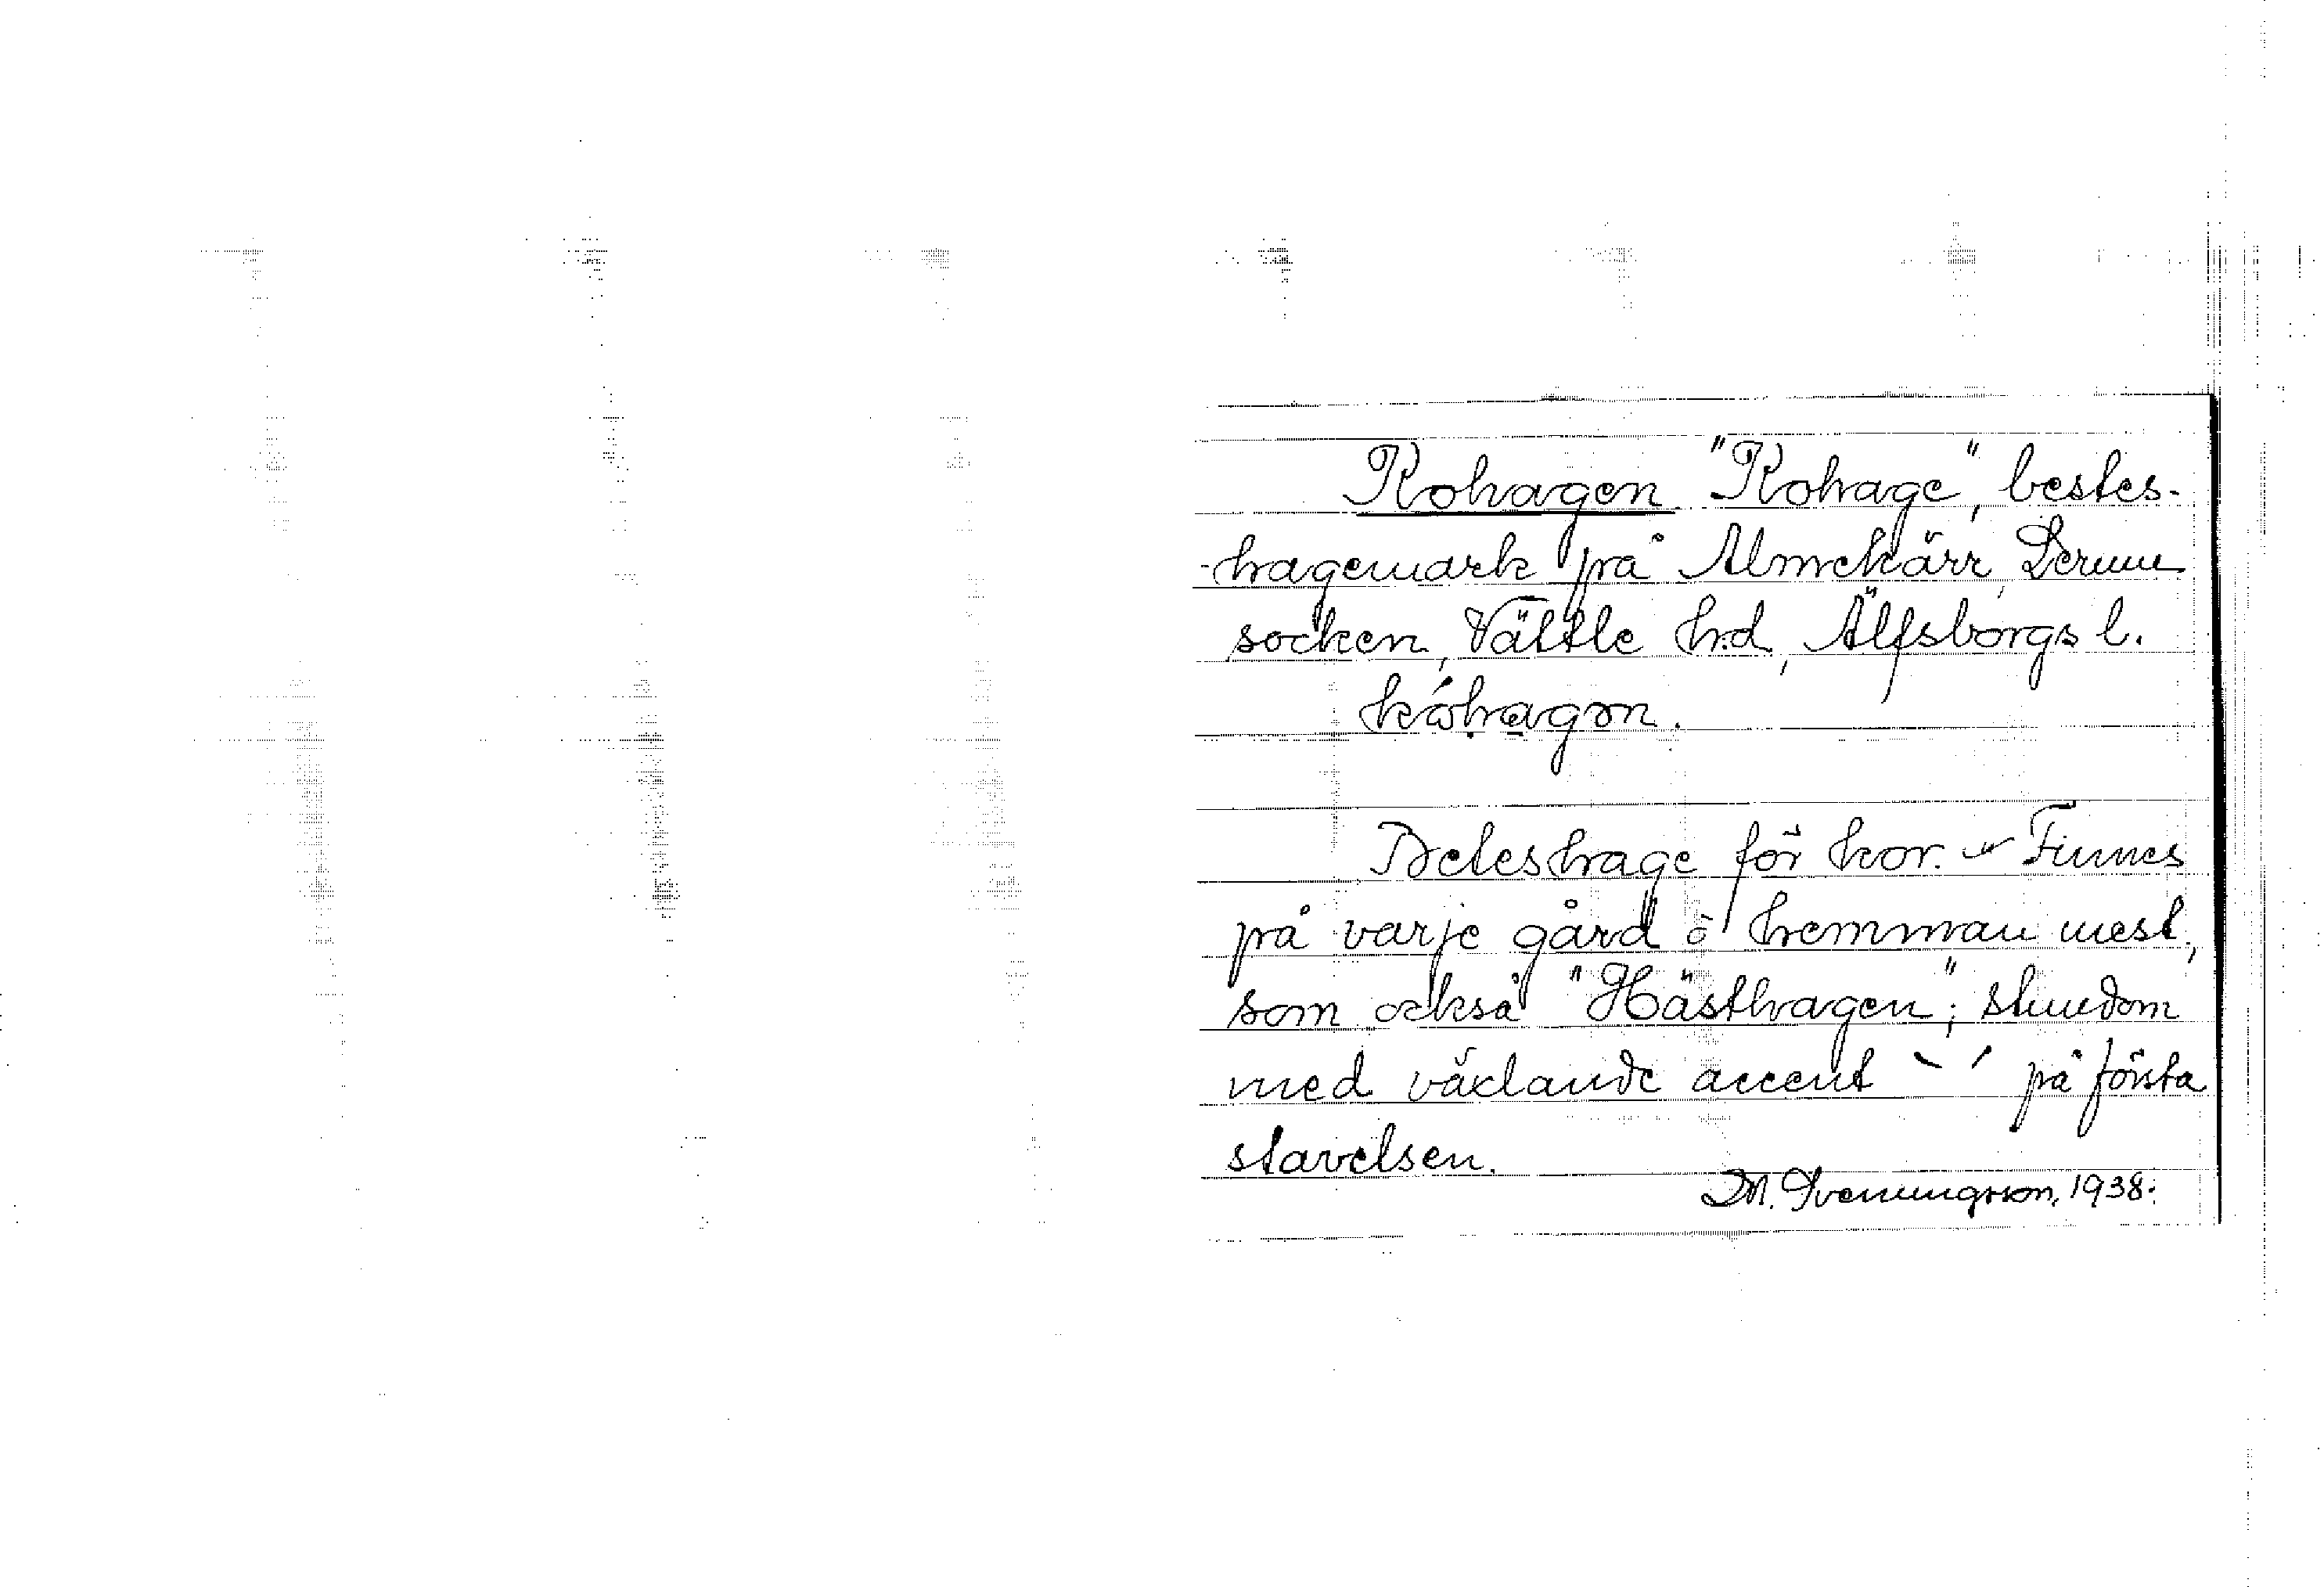 Kohagen "Kohage", bestes-
-hagemark på Almekärr, Lerum
socken, Vättle hd, Älfsborgs l.
kóhagən.
Beteshage för kor. – Finnes
på varje gård o hemman mest,
som också "Hästhagen"; stundom
med växlande accent ` ´ på första
stavelsen.
M. Svenungsson, 1938.